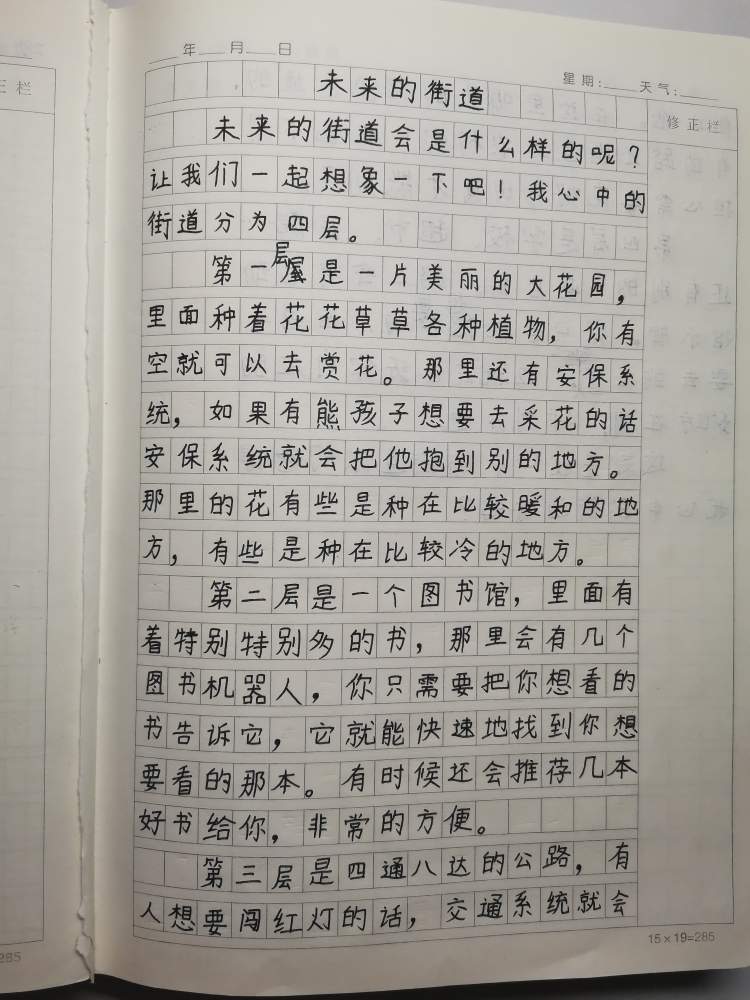 年 月 日
星期： 天气：
正栏
修正栏
未来的街道
未来的街道会是什么样的呢？
让我们一起想象一下吧！我心中的
街道分为四层。
第一层是一片美丽的大花园，
里面种着花花草草各种植物，你有
空就可以去赏花。那里还有安保系
统，如果有熊孩子想要去采花的话
安保系统就会把他抱到别的地方。
那里的花有些是种在比较暖和的地
方，有些是种在比较冷的地方。
第二层是一个图书馆，里面有
着特别特别多的书，那里会有几个
图书机器人，你只需要把你想看的
书告诉它，它就能快速地找到你想
要看的那本。有时候还会推荐几本
好书给你，非常的方便。
第三层是四通八达的公路，有
人想要闯红灯的话，交通系统就会
15×19=285
285